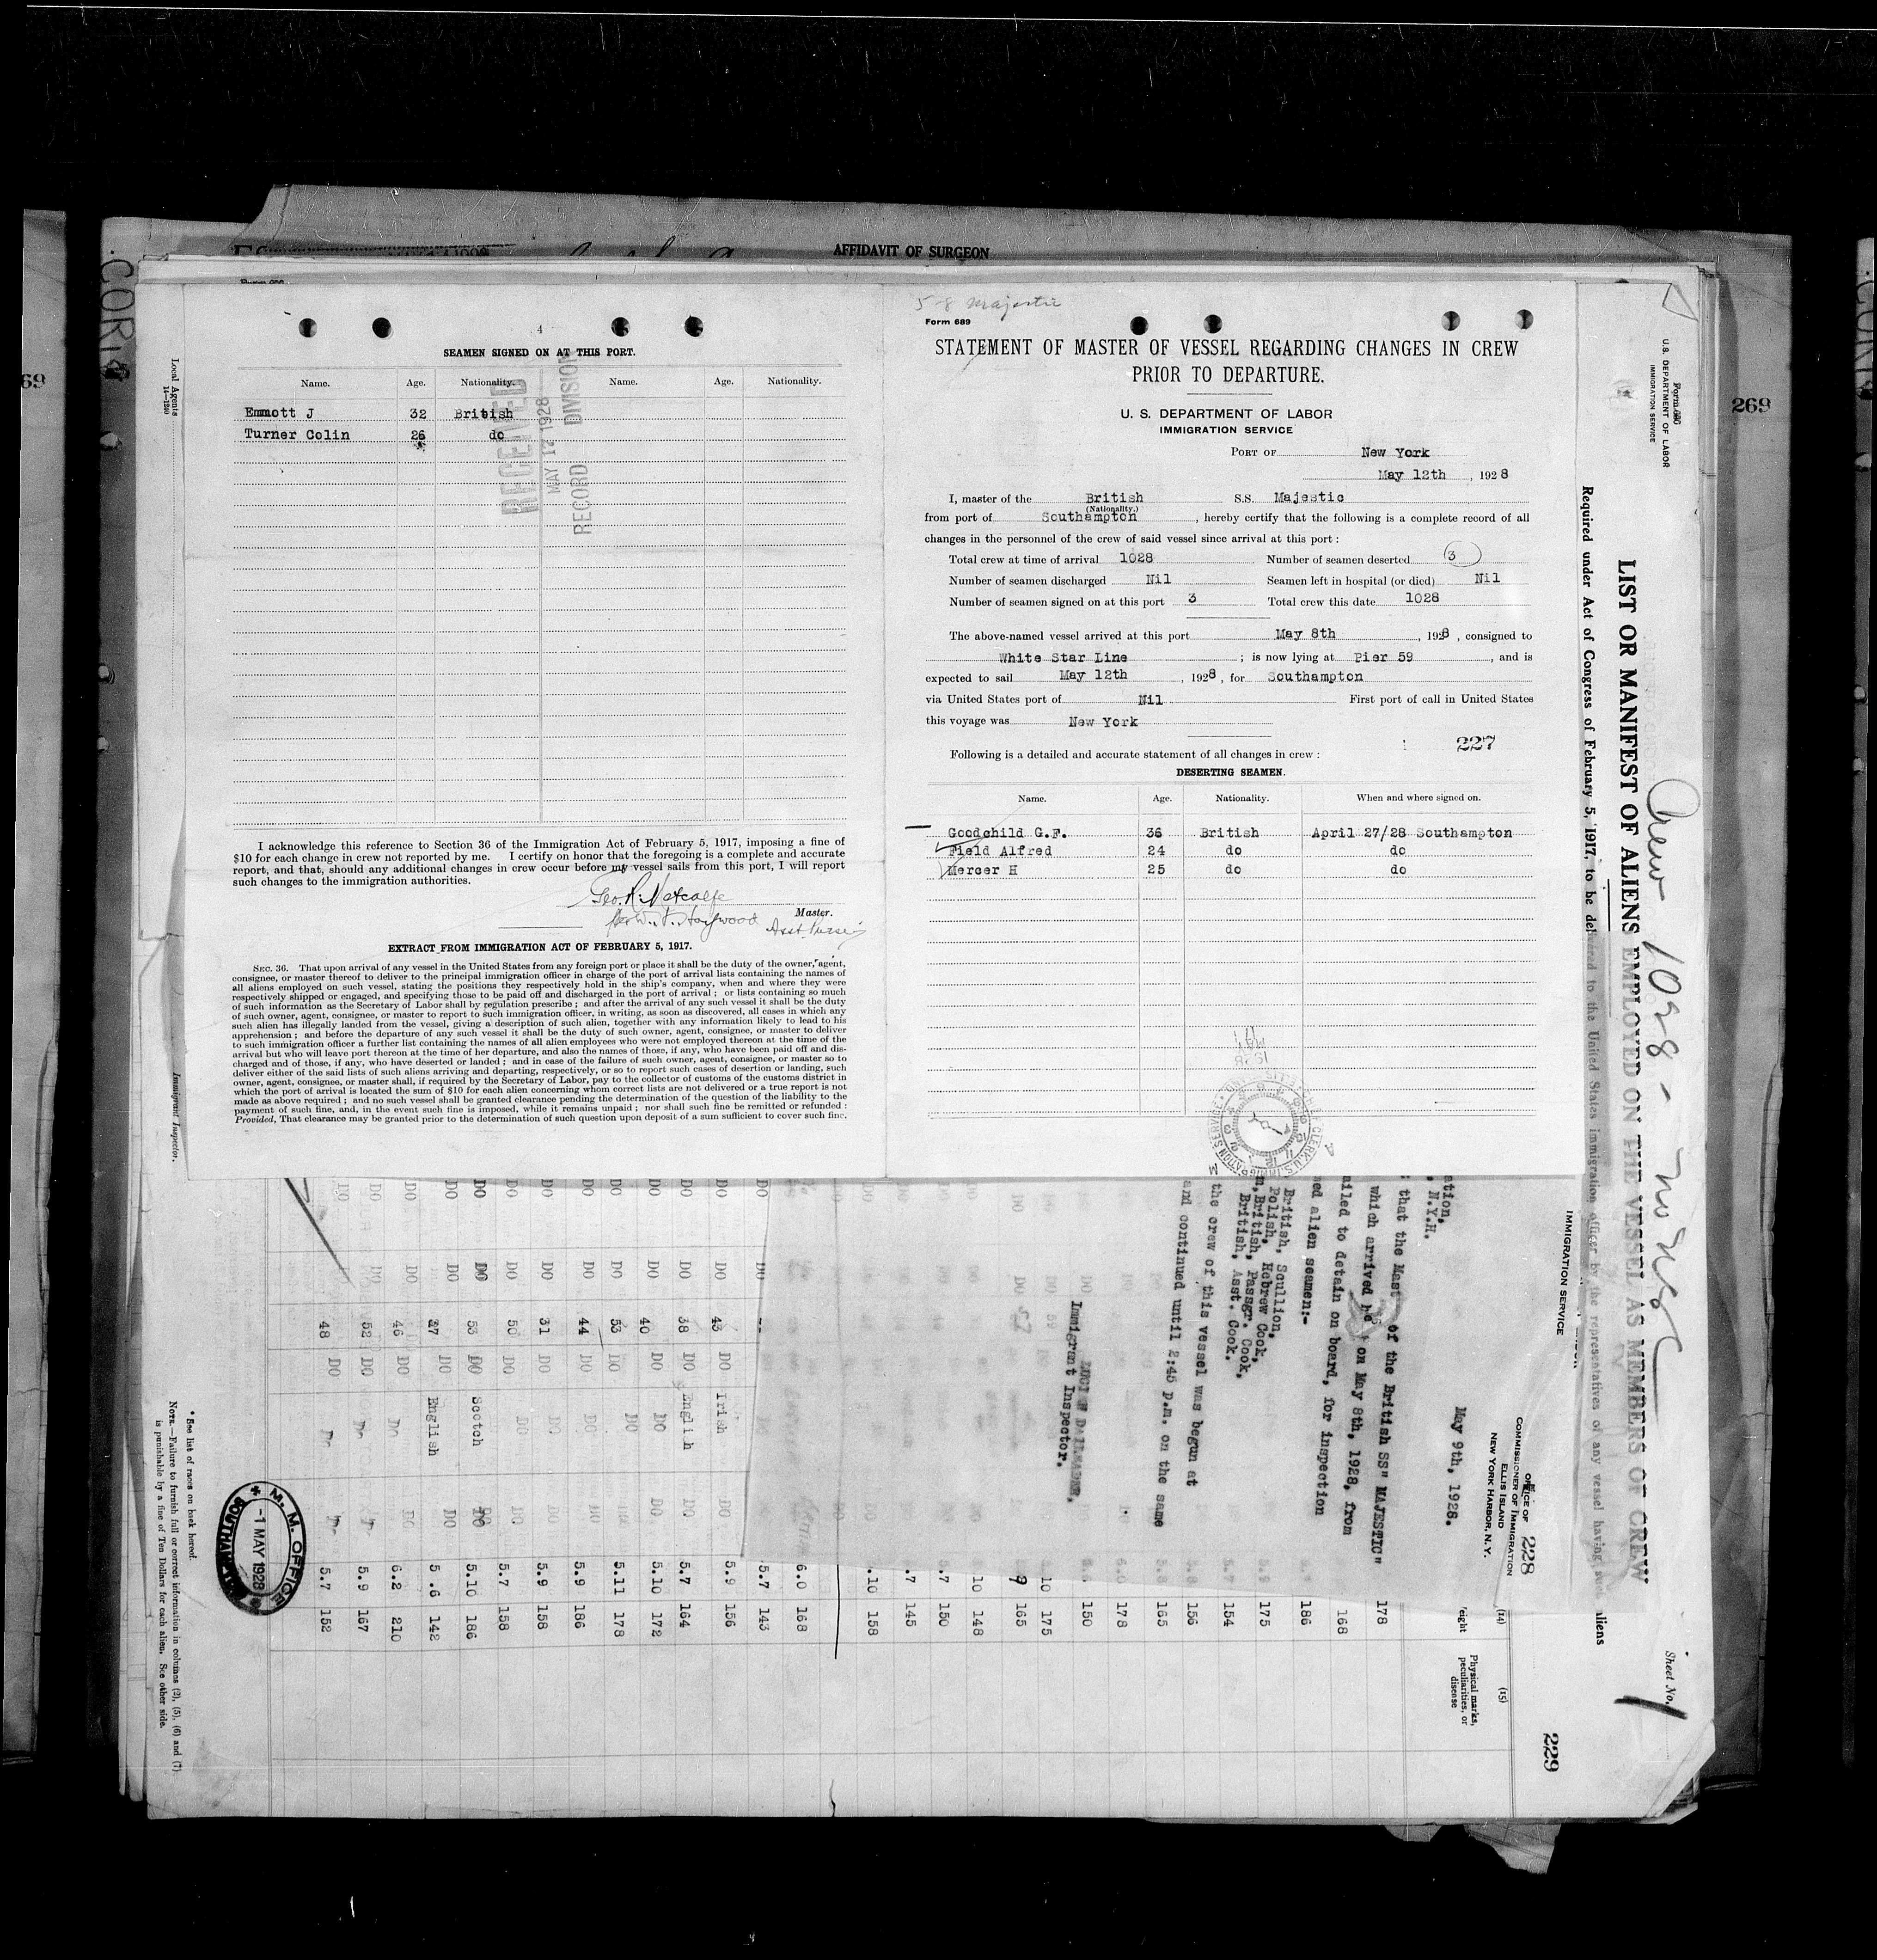 AFFIDAVIT OF SURGEON
269
69
4
SEAMEN SIGNED ON AT THIS PORT.
Name. Age. Nationality. Name. Age. Nationality.
Emmott J 32 British
Turner Colin 26 do
RECEIVED
MAY 17 1928
RECORD DIVISION
I acknowledge this reference to Section 36 of the Immigration Act of February 5, 1917, imposing a fine of
$10 for each change in crew not reported by me. I certify on honor that the foregoing is a complete and accurate
report, and that, should any additional changes in crew occur before my vessel sails from this port, I will report
such changes to the immigration authorities.
Geo. R. Metcalfe
Master.
per W. J. Haywood Asst Purser
EXTRACT FROM IMMIGRATION ACT OF FEBRUARY 5, 1917.
SEC. 36. That upon arrival of any vessel in the United States from any foreign port or place it shall be the duty of the owner, agent,
consignee, or master thereof to deliver to the principal immigration officer in charge of the port of arrival lists containing the names of
all aliens employed on such vessel, stating the positions they respectively hold in the ship's company, when and where they were
respectively shipped or engaged, and specifying those to be paid off and discharged in the port of arrival; or lists containing so much
of such information as the Secretary of Labor shall by regulation prescribe; and after the arrival of any such vessel it shall be the duty
of such owner, agent, consignee, or master to report to such immigration officer, in writing, as soon as discovered, all cases in which any
such alien has illegally landed from the vessel, giving a description of such alien, together with any information likely to lead to his
apprehension; and before the departure of any such vessel it shall be the duty of such owner, agent, consignee, or master to deliver
to such immigration officer a further list containing the names of all alien employees who were not employed thereon at the time of the
arrival but who will leave port thereon at the time of her departure, and also the names of those, if any, who have been paid off and dis-
charged and of those, if any, who have deserted or landed; and in case of the failure of such owner, agent, consignee, or master so to
deliver either of the said lists of such aliens arriving and departing, respectively, or so to report such cases of desertion or landing, such
owner, agent, consignee, or master shall, if required by the Secretary of Labor, pay to the collector of customs of the customs district in
which the port of arrival is located the sum of $10 for each alien concerning whom correct lists are not delivered or a true report is not
made as above required; and no such vessel shall be granted clearance pending the determination of the question of the liability to the
payment of such fine, and, in the event such fine is imposed, while it remains unpaid; nor shall such fine be remitted or refunded:
Provided, That clearance may be granted prior to the determination of such question upon deposit of a sum sufficient to cover such fine.
5-8 Majestic
Form 689
STATEMENT OF MASTER OF VESSEL REGARDING CHANGES IN CREW
PRIOR TO DEPARTURE.
U. S. DEPARTMENT OF LABOR
IMMIGRATION SERVICE
PORT OF New York
May 12th, 1928
I, master of the British S.S. Majestic
(Nationality.)
from port of Southampton, hereby certify that the following is a complete record of all
changes in the personnel of the crew of said vessel since arrival at this port:
Total crew at time of arrival 1028 Number of seamen deserted 3
Number of seamen discharged Nil Seamen left in hospital (or died) Nil
Number of seamen signed on at this port 3 Total crew this date 1028
The above-named vessel arrived at this port May 8th, 1928, consigned to
White Star Line; is now lying at Pier 59, and is
expected to sail May 12th, 1928, for Southampton
via United States port of Nil First port of call in United States
this voyage was New York
227
Following is a detailed and accurate statement of all changes in crew:
DESERTING SEAMEN.
Name. Age. Nationality. When and where signed on.
Goodchild G.F. 36 British April 27/28 Southampton
Field Alfred 24 do do
Mercer H 25 do do
Local Agents
14-1240
Immigrant Inspector.
U. S. DEPARTMENT OF LABOR
IMMIGRATION SERVICE
LIST OR MANIFEST OF ALIENS EMPLOYED ON THE VESSEL AS MEMBERS OF CREW
Required under Act of Congress of February 5, 1917, to be delivered to the United States immigration officer by the representatives of any vessel having such aliens
Crew 1028 -
Sheet No. 1
229
IMMIGRATION SERVICE
OFFICE OF 228
COMMISSIONER OF IMMIGRATION
ELLIS ISLAND
NEW YORK HARBOR, N. Y.
May 9th, 1928.
ation,
, N.Y.H.
: that the Mast of the British SS" MAJESTIC"
which arrived he on May 8th, 1928, from
ailed to detain on board, for inspection
ed alien seamen:-
British, Scullion,
Polish, Hebrew Cook,
n, British, Passgr. Cook,
British, Asst. Cook.
the crew of this vessel was begun at
and continued until 2:45 p.m. on the same
Immigrant Inspector.
(14)
(15)
Physical marks, peculiarities, or disease
178
168
186
175
154
156
165
178
150
175
165
148
150
145
158
6.0 168
5.7 143
DO DO 43 DO Irish DO 5.9 156
DO DO 38 DO English DO 5.7 164
DO DO 40 DO DO DO 5.10 172
DO DO 53 DO DO 5.11 178
DO DO 44 DO DO DO 5.9 186
DO DO 31 DO DO DO 5.9 158
DO DO 50 DO DO DO 5.7 158
DO DO 53 DO Scotch DO 5.10 186
DO DO 27 DO English DO 5.6 142
DO DO 46 DO DO DO 6.2 210
DO DO 52 DO Do 5.9 167
DO 48 DO Do 5.7 152
M. M. OFFICE
-1 MAY 1928
SOUTHAMPTON
* See list of races on back hereof.
NOTE.—Failure to furnish full or correct information in columns (2), (5), (6) and (7)
is punishable by a fine of Ten Dollars for each alien. See other side.